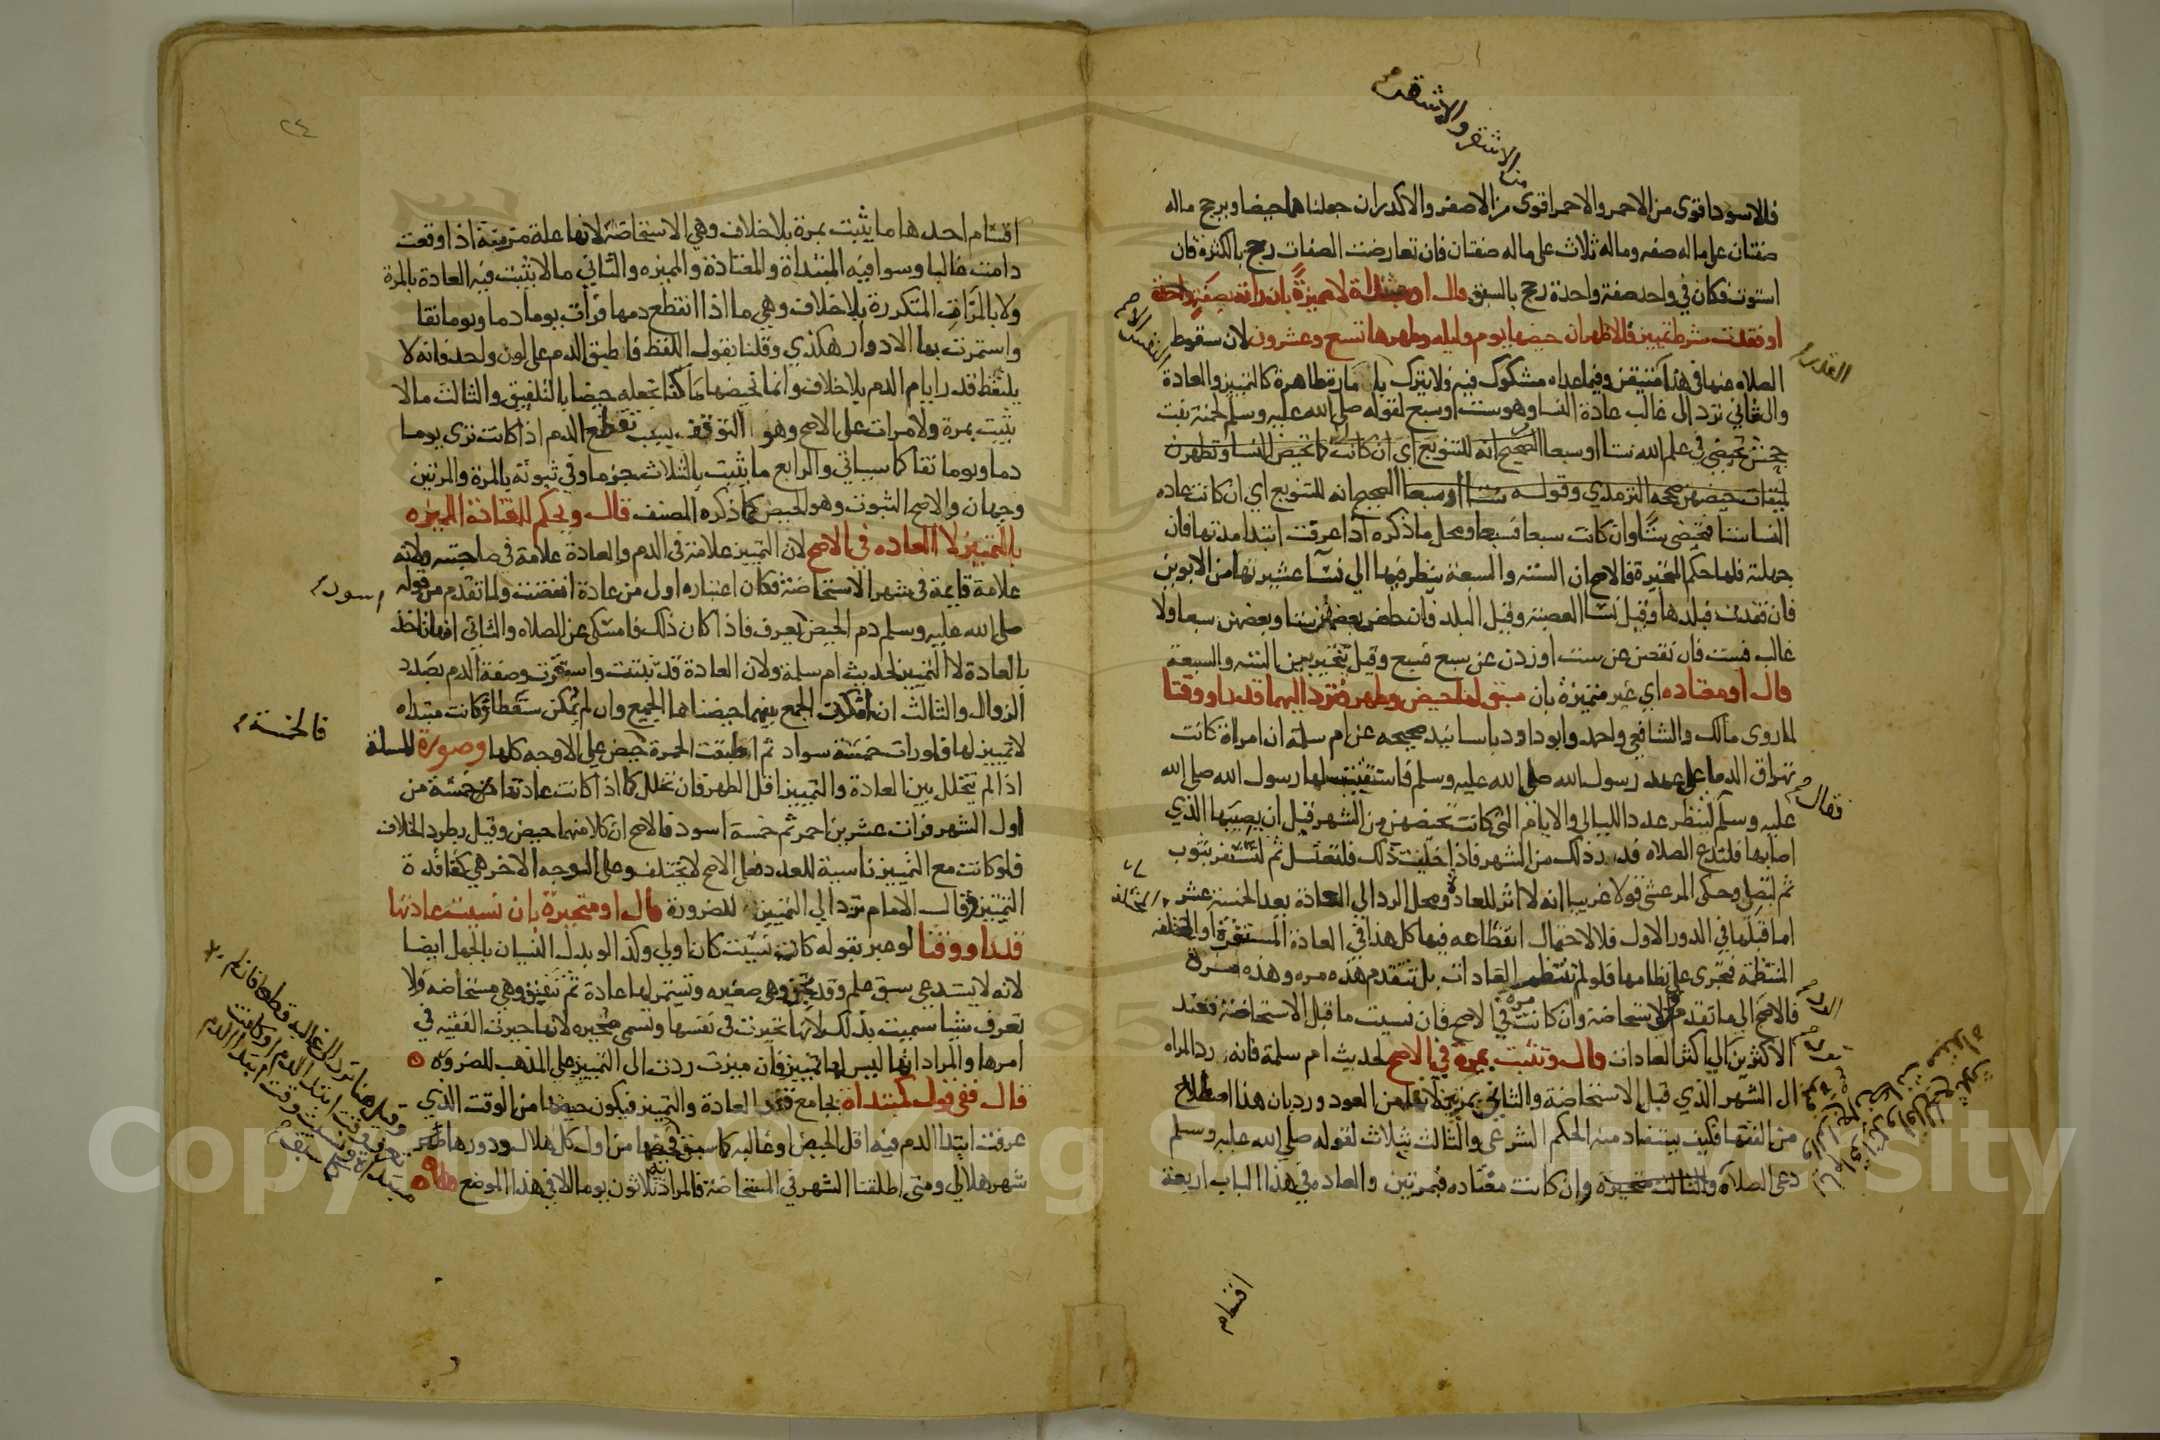 من الاشقر والاشقر
فالاسود اقوى من الاحمر والاحمر اقوى من الاصفر والاكدر ان جعلناهما حيضا ويرجح ماله
صفتان على ماله صفه وماله ثلاث على ماله صفتان فان تعارضت الصفات رجح بالكثرة فان
استوت فكان في واحد صفة واحدة رجح بالسبق قال او مبتداة لا مميزة بان راته بصفة واحدة
او فقدت شرط تمييز فالاظهر ان حيضها يوم وليله وطهرها تسع وعشرون لان سقوط
الصلاه عنها في هذا متيقن وفيما عداه مشكوك فيه ولا يترك الا بامارة ظاهرة كالتمييز والعادة
والثاني ترد الى غالب عادة النسا وهو ست او سبع لقوله صلى الله عليه وسلم لحمنة بنت
جحش تحيضي في علم الله ستا او سبعا الصحيح انه للتنويع اي ان كانت كما تحيض النسا وتطهرن
لميقات حيضهن صححه الترمذي وقوله ستا او سبعا الصحيح انه للتنويع اي ان كانت عاده
النسا ستا فتحيضي ستا وان كانت سبعا فسبعا ومحل ما ذكره اذا عرفت ابتدا مدتها فان
جهلته فلها حكم المتحيرة فالاصح ان الستة والسبعة ينظر فيها الى نسا عشيرتها من الابوين
فان فقدت فبلدها وقيل نسا العصبة وقيل البلد فان حاض بعضهن ستا وبعضهن سبعا ولا
غالب فست فان نقصن عن ست او زدن عن سبع فسبع وقيل تتخير بين الستة والسبعة
قال او معتاده اي غير مميزة بان سبق لها حيض وطهر فترد اليهما قدرا ووقتا
لما روى مالك والشافعي واحمد وابو داود باسانيد صحيحه عن ام سلمة ان امراة كانت
تهراق الدما على عهد رسول الله صلى الله عليه وسلم فاستفتيت لها رسول الله صلى الله
عليه وسلم لتنظر عدد الليالي والايام التي كانت تحيضهن من الشهر قبل ان يصيبها الذي
اصابها فلتدع الصلاه قدر ذلك من الشهر فاذا خلفت ذلك فلتغتسل ثم لتستثفر بثوب
ثم لتصلي وحكى المرعشي قولا غريبا انه لا اثر للعادة ومحل الرد الى العادة بعد الخمسة عشر
اما قبلها في الدور الاول فلا لاحتمال انقطاعه فيها كل هذا في العادة المستقرة او المختلفه
المنتظمة فتجرى على نظامها فلو لم تنتظم العادات بل تتقدم هذه مره وهذه مرة
فالاصح الى ما تقدم الاستحاضة وان كانت مرة في الاصح فان نسيت ما قبل الاستحاضة فعند
الاكثرين الى اكثر العادات قال وتثبت بمرة في الاصح لحديث ام سلمة فانه رد المراه
الى الشهر الذي قبل الاستحاضة والثاني بمرتين لانها من العود ورد بان هذا اصطلاح
من الفقها فكيف يستفاد منه الحكم الشرعي والثالث بثلاث لقوله صلى الله عليه وسلم
دعي الصلاة والثالث وان كانت معتاده فبمرتين والعاده في هذا الباب اربعة
القدر
فقال
اقسام
٢٤
اقسام احدها ما يثبت بمرة بلا خلاف وهي الاستحاضة لانها علة مزمنة اذا وقعت
دامت غالبا وسوا فيه المبتداة والمعتادة والمميزه والثاني ما لا يثبت فيه العادة بالمرة
ولا بالمرات المتكررة بلا خلاف وهي ما اذا انقطع دمها فرات يوما دما ويوما نقا
واستمرت بها الادوار هكذي وقلنا بقول اللقط فاطبق الدم على لون واحد فانه لا
يلتقط قدر ايام الدم بلا خلاف وانما تحيضها ما كنا نجعله حيضا بالتلفيق والثالث ما لا
يثبت بمرة ولا مرات على الاصح وهو التوقف بسبب تقطع الدم اذا كانت ترى يوما
دما ويوما نقا كما سياتي والرابع ما يثبت بالثلاث جزما وفي ثبوته بالمرة والمرتين
وجهان والاصح الثبوت وهو الحيض كما ذكره المصنف قال ويحكم للمعتادة المميزه
بالتمييز لا العاده في الاصح لان التمييز علامة في الدم والعادة علامة في صاحبته ولانه
علامة قايمة في شهر الاستحاضة فكان اعتباره اولى من عادة انقضت ولما تقدم من قوله
صلى الله عليه وسلم دم الحيض يعرف فاذا كان ذلك فامسكي عن الصلاه والثاني انها تاخذ
بالعادة لا التمييز لحديث ام سلمة ولان العادة قد ثبتت واستقرت وصفة الدم بصدد
الزوال والثالث ان امكن الجمع بينهما حيضناها الجميع وان لم يمكن سقطا وكانت مبتداه
لا تمييز لها فلو رات خمسة سواد ثم اطبقت الحمرة حيض على الاوجه كلها وصورة المسلة
اذا لم يتخلل بين العادة والتمييز اقل الطهر فان تخلل كما اذا كانت عادتها خمسة من
اول الشهر فرات عشرين احمر ثم خمسة اسود فالاصح ان كلا منهما حيض وقيل يطرد الخلاف
فلو كانت مع التمييز ناسية للعدد فعلى الاصح لا يختلف وعلى الوجه الاخر هي كفاقدة
التمييز وقال الامام ترد الى التمييز للضرورة قال او متحيرة بان نسيت عادتها
قدرا ووقتا لو عبر بقوله كان نسيت كان اولى وكذا لو بدل النسيان بالجهل ايضا
لانه لا يستدعي سبق علم وقد تجن وهي صغيره وتستمر لها عادة ثم تفيق وهي مستحاضة ولا
تعرف شيا سميت بذلك لانها تحيرت في نفسها وتسمى محيره لانها حيرت الفقيه في
امرها والمراد انها ليس لها تمييز فان ميزت ردت الى التمييز على المذهب للضروره
قال ففي قول كمبتداة بجامع فقد العادة والتمييز فيكون حيضها من الوقت الذي
عرفت ابتدا الدم فيه اقل الحيض او غالبه كما سبق
شهر هلالي ومتى اطلقنا الشهر في المستحاضة فالمراد به ثلاثون يوما الا في هذا الموضع
اسود
فالخمسة
Copyright © King Saud University